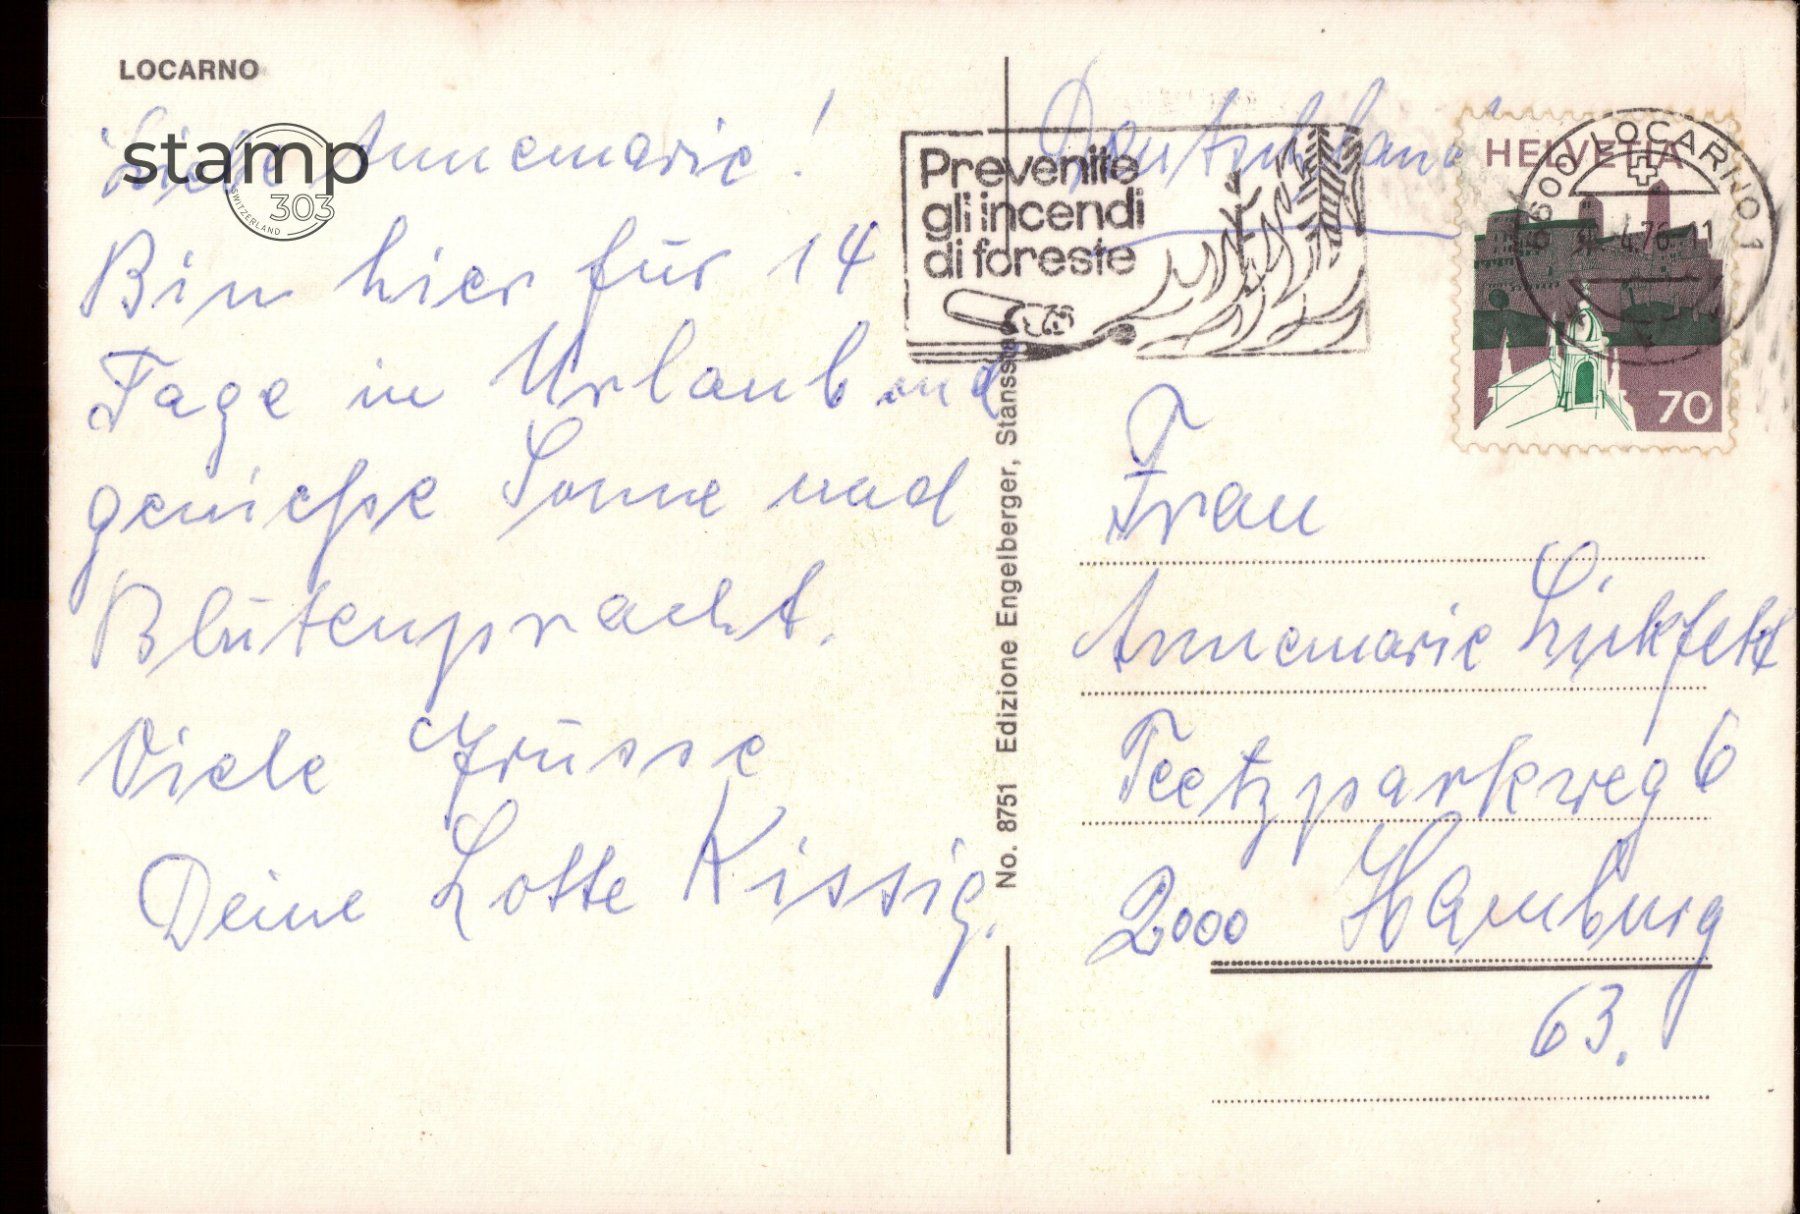 LOCARNO
stamp
303
SWITZERLAND
Liebe Annemarie!
Bin hier für 14
Tage in Urlaub und
genieße Sonne und
Blütenpracht.
Viele Grüsse
Deine Lotte Kissig.
No. 8751 Edizione Engelberger, Stansstad
Deutschland
Prevenite
gli incendi
di foreste
HELVETIA
6600 LOCARNO 1
4.76-11
70
Frau
Annemarie
Teetzparkweg 6
2000 Hamburg
63.